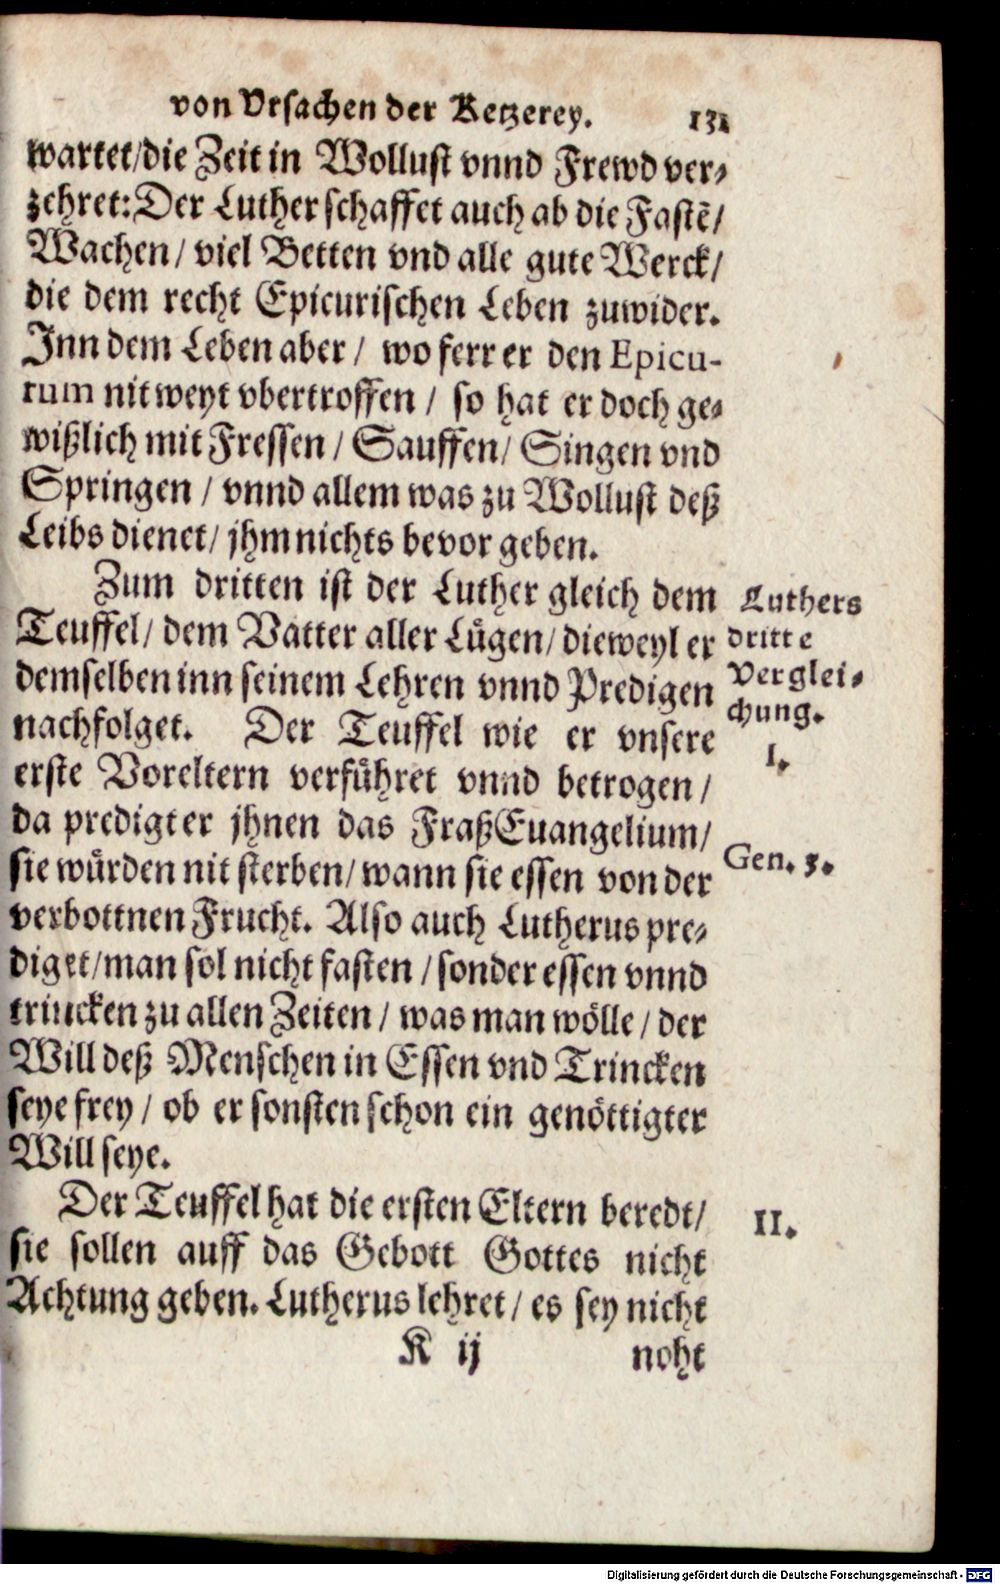 von Vrsachen der Ketzerey. 131
wartet/die Zeit in Wollust vnnd Frewd ver-
zehret: Der Luther schaffet auch ab die Fastẽ/
Wachen/ viel Betten vnd alle gute Werck/
die dem recht Epicurischen Leben zuwider.
Inn dem Leben aber/ wo ferr er den Epicu-
rum nit weyt vbertroffen/ so hat er doch ge-
wißlich mit Fressen/ Sauffen/ Singen vnd
Springen/ vnnd allem was zu Wollust deß
Leibs dienet/ jhm nichts bevor geben.
Zum dritten ist der Luther gleich dem
Teuffel/ dem Vatter aller Lügen/ dieweyl er
demselben inn seinem Lehren vnnd Predigen
nachfolget. Der Teuffel wie er vnsere
erste Voreltern verführet vnnd betrogen/
da predigt er jhnen das FraßEuangelium/
sie würden nit sterben/ wann sie essen von der
verbottnen Frucht. Also auch Lutherus pre-
diget/man sol nicht fasten/ sonder essen vnnd
trincken zu allen Zeiten/ was man wölle/ der
Will deß Menschen in Essen vnd Trincken
seye frey/ ob er sonsten schon ein genöttigter
Will seye.
Der Teuffel hat die ersten Eltern beredt/
sie sollen auff das Gebott Gottes nicht
Achtung geben. Lutherus lehret/ es sey nicht
K ij noht
Luthers
dritte
Verglei-
chung.
I.
Gen. 3.
II.
Digitalisierung gefördert durch die Deutsche Forschungsgemeinschaft - DFG